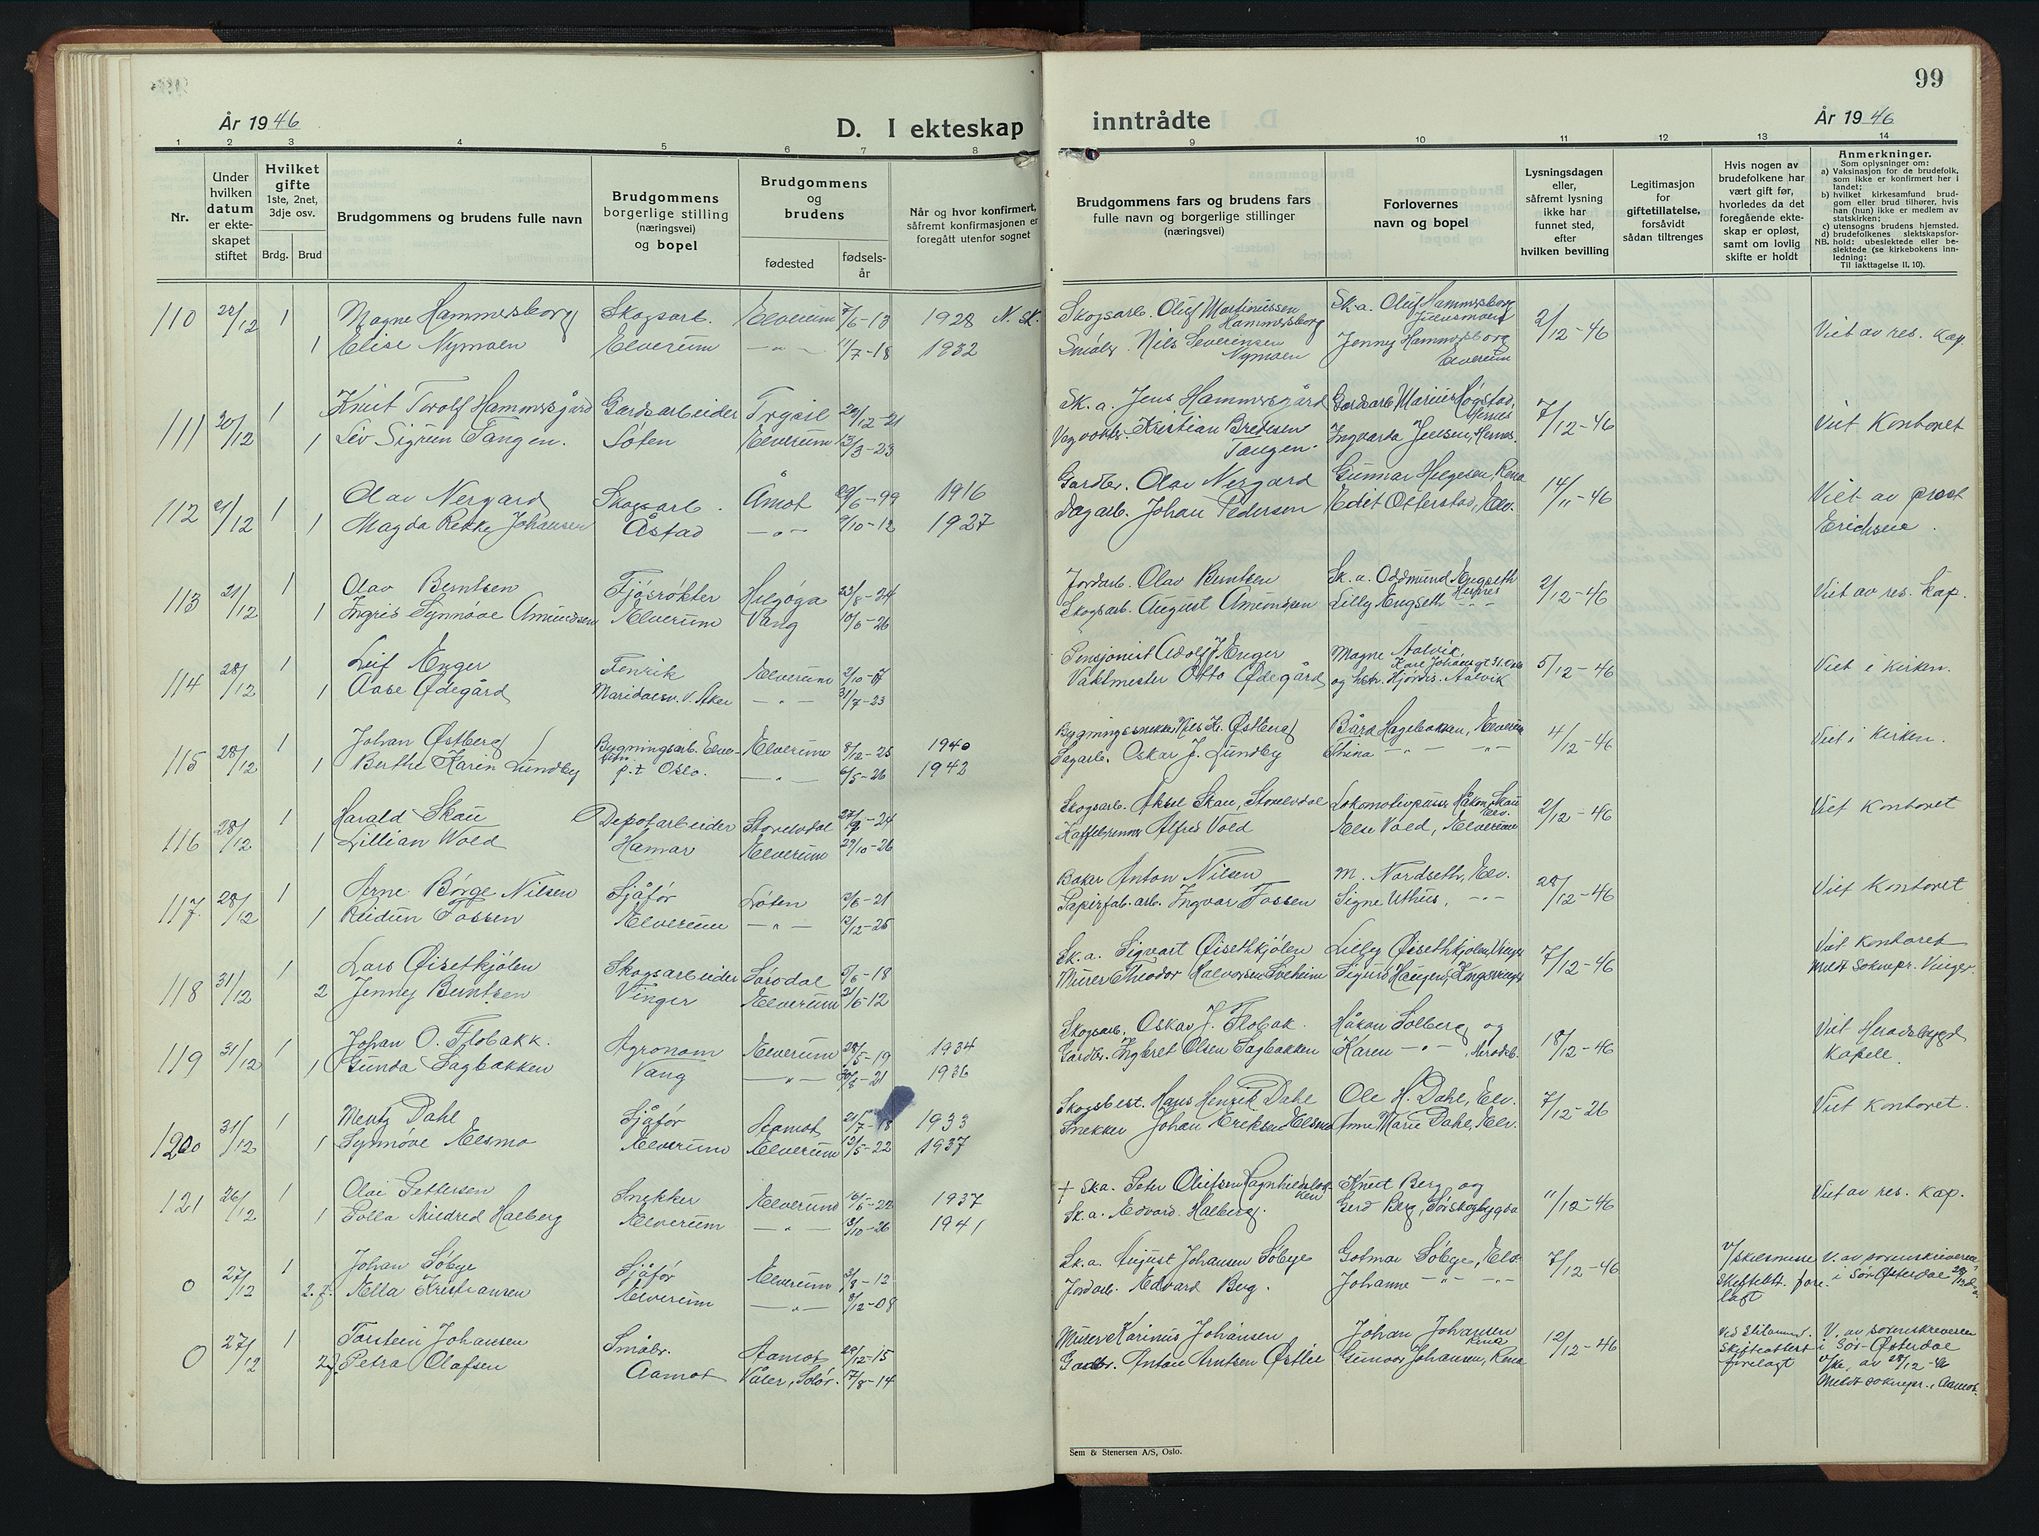 99
År 1946
D. I ekteskap
inntrådte
År 1946
1 2 3 4 5 6 7 8 9 10 11 12 13 14
Nr.
Under hvilken datum er ekteskapet stiftet
Hvilket gifte 1ste, 2net, 3dje osv.
Brdg. Brud
Brudgommens og brudens fulle navn
Brudgommens borgerlige stilling (næringsvei) og bopel
Brudgommens og brudens
fødested fødselsår
Når og hvor konfirmert, såfremt konfirmasjonen er foregått utenfor sognet
Brudgommens fars og brudens fars fulle navn og borgerlige stillinger (næringsvei)
Forlovernes navn og bopel
Lysningsdagen eller, såfremt lysning ikke har funnet sted, efter hvilken bevilling
Legitimasjon for giftetillatelse, forsåvidt sådan tiltrenges
Hvis nogen av brudefolkene har vært gift før, hvorledes da det foregående ekteskap er opløst, samt om lovlig skifte er holdt
Anmerkninger.
Som oplysninger om:
a) Vaksinasjon for de brudefolk, som ikke er konfirmert her i landet;
b) hvilket kirkesamfund brudgom eller brud tilhører, hvis han (hun) ikke er medlem av statskirken;
c) utensogns brudens hjemsted.
d) brudefolkenes slektskapsforhold: ubeslektede eller beslektede (se kirkebokens innledning:
NB. Til iakttagelse II. 10).
110 22/12 1 Magne Hammersborg Skogsarb. Elverum 7/6-13 1928 N. Sk. Skogsarb. Oluf Martinussen Hammersborg Sk.a. Oluf Hammersborg 2/12-46 Viet av res. Kap.
1 Elise Nymoen Elverum -"- 11/7-18 1932 Småbr. Nils Severensen Nymoen Jenny Hammersborg Elverum
111 20/12 1 Knut Torolf Hammersgård Gardsarbeider Trysil 29/12-21 Sk.a. Jens Hammersgård Gardsarb. Marius Høgstad, Hernes 7/12-46 Viet Kontoret
1 Liv Sigrun Tangen. Løten Elverum 13/3-23 Vegvokter. Kristian Bredesen Tangen. Ingvarda Jensen, Hernes.
112 21/12 1 Olav Nergard Skogsarb. Åmot 29/6-99 1916 Gardbr. Olav Nergard Gunnar Helgesen, Rena 14/11-46 Viet av prost Erichsen.
1 Magda Rekke Johansen Åstad -"- 7/10-12 1927 Dagarb. Johan Pedersen Edit Otterstad, Elv.
113 21/12 1 Olav Berntsen Fjøsrøkter Helgøya 23/8-24 Jordarb. Olav Berntsen Sk.a. Oddmund Engseth Hernes 2/12-46 Viet av res. Kap.
1 Ingris Synnøve Amundsen Elverum Vang 10/6-26 Skogsarb. August Amundsen Lilly Engseth -"-
114 28/12 1 Leif Enger Fenrik Elverum 2/10-17 Pensjonist Adolf J Enger Magne Aalvik, Karl Johansgt 31. Oslo 5/12-46 Viet i Kirken.
1 Aase Ødegård Maridalsv. V. Aker -"- 31/7-23 Vaktmester Otto Ødegård og hstr. Hjørdis Aalvik
115 28/12 1 Johan Østberg Bygningsarb. Elverum 8/12-25 1940 Bygningssnekker Nils Kr. Østberg Bård Hagebakken, Elverum 4/12-46 Viet i Kirken.
1 Berthe Karin Lundby p.t Oslo. -"- 6/5-26 1942 Sagarb. Oskar J. Lundby Stina -"- -"-
116 28/12 1 Harald Skau Depotarbeider Storelvdal 27/9-24 Skogsarb. Aksel Skau, Storelvdal Lokomotivpuss. Håkon Skau Elv. 2/12-46 Viet Kontoret
1 Lillian Wold Hamar Elverum 29/10-26 Kaffebrenner Alfred Vold Else Vold, Elverum
117. 28/12 1 Arne Børge Nilsen Sjåfør Løten 2/6-21 Baker Anton Nilsen M. Nordseth, Elv. 28/12-46 Viet Kontoret
1 Reidun Fossen Elverum -"- 12/12-25 Papirfab. arb. Ingvar Fossen Signe Uthus, -"-
118 31/12 1 Lars Øisethkjølen Skogsarbeider Sørødal 5/6-18 Sk.a. Sigvart Øisethkjølen Lilly Øisethkjølen, Vinger 7/12-46 Viet Kontoret
2 Jenney Berntsen Vinger Elverum 21/6-12 Murer Theodor Halvorsen Sveheim Sigurd Haugen, Kongsvinger Meldt Soknepr. Vinger
119 31/12 1 Johan O. Flobakk. Agronom Elverum 28/5-19 1934 Skogsarb. Oskar J. Flobak. Håkon Solberg og 18/12-46 Viet Heradsbygd Kapell.
1 Gunda Sagbakken Vang -"- 30/8-21 1936 Gardbr. Ingbret Olsen Sagbakken Karen -"-, Heradsb.
120 31/12 1 Mentz Dahl Sjåfør Aamot, 21/7-18 1933 Skogsbest. Hans Henrik Dahl Ole H. Dahl, Elv. 7/12-26 Viet Kontoret.
1 Synnøve Elsmo Elverum Elverum 12/5-22 1937 Snekker Johan Eriksen Elsmo Anne Marie Dahl, Elv.
121 26/12 1 Olai Pettersen Snekker Elverum 16/6-22 1937 + Sk.a. Peter Olufsen Ragnhildsløkken Knud Berg og 11/12-46 Viet av res. Kap.
1 Solla Mildred Halberg Elverum -"- 3/10-26 1941 Sk.a. Edvard Halberg. Gerd Berg, Sørskogbygda
0 27/12 1 Johan Søbye Sjåfør Elverum 3/3-12 Sk.a. August Johansen Søbye Gotmar Søbye, Elv. 7/12-46 v/skilsmisse V. av sorenskriveren
2.f. Ella Kristiansen Elverum -"- 8/12-08 Jordarb. Edvard Berg. Johanne -"- -"- Skifteatt. forelagt i Sør Østerdal 28/12
0 27/12 1 Torstein Johansen Småbr. Aamot 29/12-15 Murer Karinus Johansen Johan Johansen Rena 12/12-46 Ved skilsmisse. V. av sorenskriveren
2f Petra Olafsen Aamot Våler, Solør. 17/8-14 Gardbr. Anton Arntsen Østlie Gunvor Johansen, Rena Skifteattest forelagt i Sør-Østerdal
av 28/12-46
Meldt soknepr. i Aamot.
Sem & Stenersen A/S, Oslo.